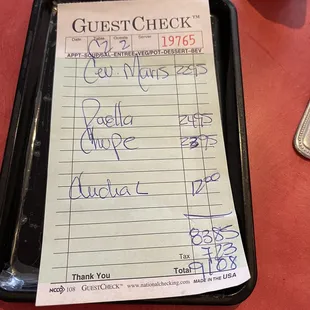 GUESTCHECK™
Date Table Guests Server
12 2 19765
APPT-SOUP/SAL-ENTREE-VEG/POT-DESSERT-BEV
Cev. Maris 2295
Paella 2495
Chupe 2395
12.00
8385
Tax 723
Thank You Total 9108
NCCO 108 GUESTCHECK™ www.nationalchecking.com MADE IN THE USA